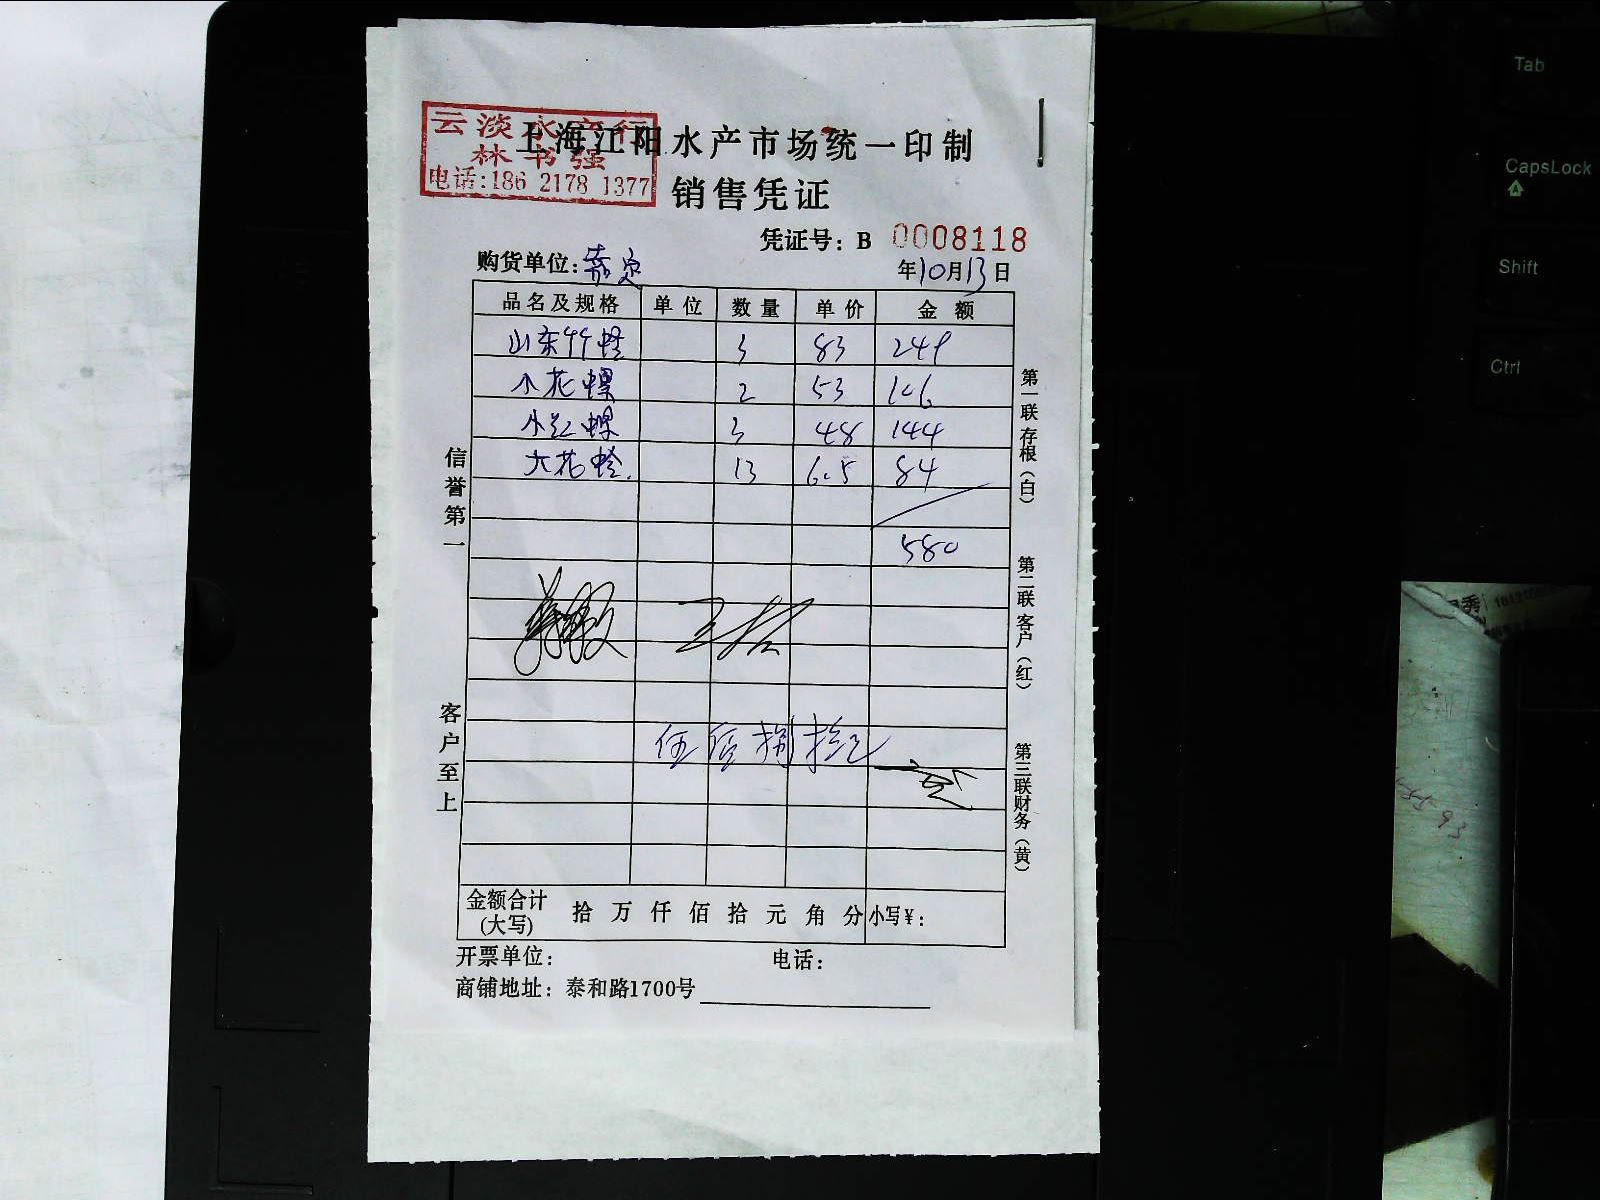 云淡水产行
林书强
电话:186 2178 1377
上海江阳水产市场统一印制
销售凭证
凭证号: B 0008118
购货单位:嘉定
年10月13日
品名及规格 单位 数量 单价 金额
山东 蛏 3 83 249
小花螺 2 53 106
小红螺 3 48 144
大花蛤 13 6.5 84
580
伍佰捌拾元
信誉第一
客户至上
第一联存根(白)
第二联客户(红)
第三联财务(黄)
金额合计(大写) 拾 万 仟 佰 拾 元 角 分 小写¥:
开票单位: 电话:
商铺地址: 泰和路1700号
Tab
CapsLock
Shift
Ctrl